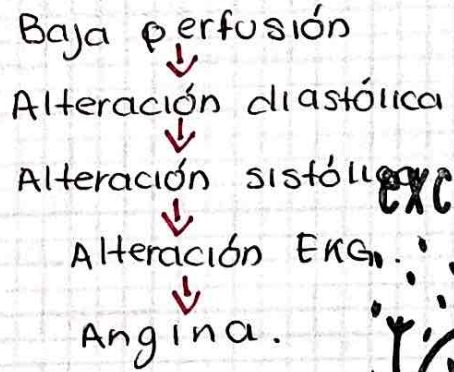 Baja perfusión
Alteración diastólica
Alteración sistólica
Alteración EKG.
Angina.